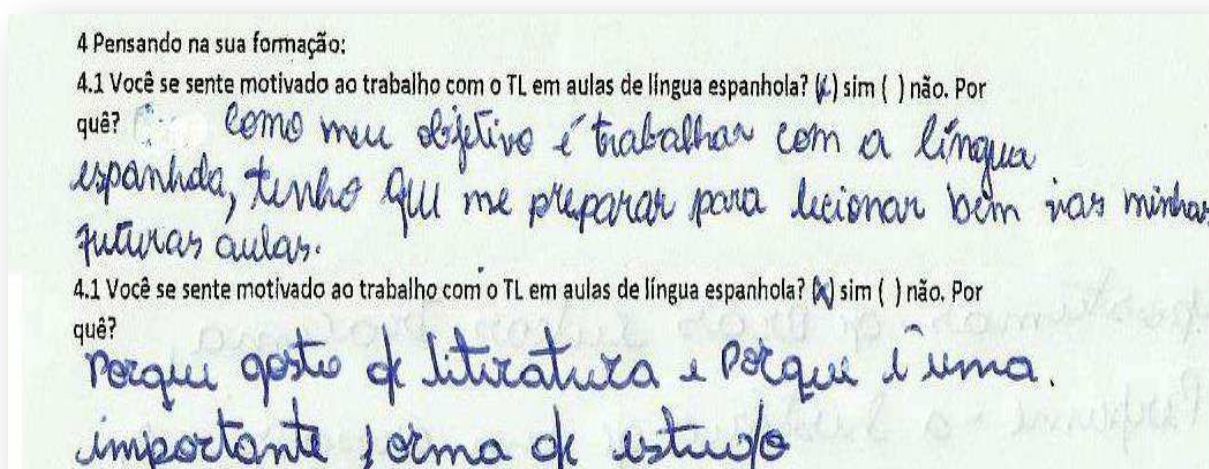 4 Pensando na sua formação:
4.1 Você se sente motivado ao trabalho com o TL em aulas de língua espanhola? (x) sim ( ) não. Por
quê? Como meu objetivo é trabalhar com a língua
espanhola, tenho que me preparar para lecionar bem nas minhas
futuras aulas.
4.1 Você se sente motivado ao trabalho com o TL em aulas de língua espanhola? (x) sim ( ) não. Por
quê?
Porque gosto de literatura e Porque é uma.
importante forma de estudo